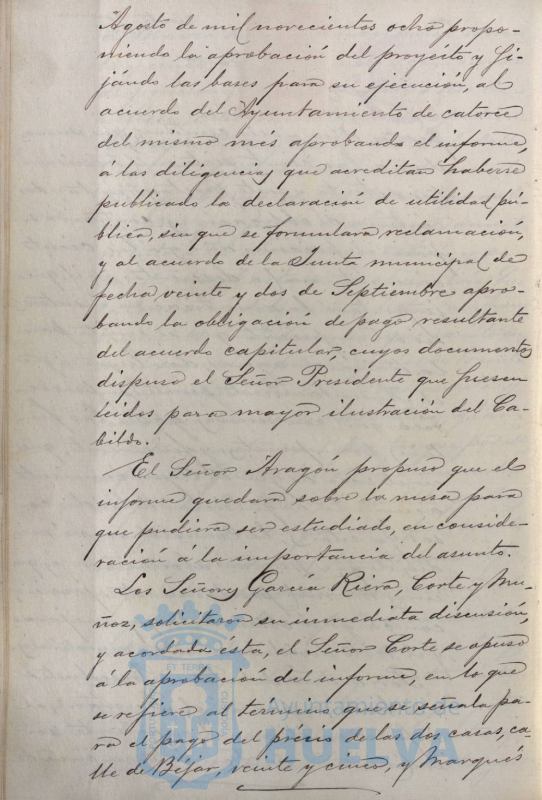 Agosto de mil novecientos ocho propo-
niendo la aprobación del proyecto y fi-
jando las bases para su ejecución, al
acuerdo del Ayuntamiento de catorce
del mismo mes aprobando el informe,
á las diligencias que acreditan haberse
publicado la declaración de utilidad pú-
blica, sin que se formulara reclamación,
y al acuerdo de la Junta municipal de
fecha veinte y dos de Septiembre apro-
bando la obligación de pago resultante
del acuerdo capitular, cuyos documentos
dispuso el Señor Presidente que fuesen
leidos para mayor ilustración del Ca-
bildo.
El Señor Aragón propuso que el
informe quedara sobre la mesa para
que pudiera ser estudiado, en conside-
ración á la importancia del asunto.
Los Señores García Riera, Corte y Mu-
ñoz, solicitaron su inmediata discusión,
y acordada ésta, el Señor Corte se opuso
á la aprobación del informe, en lo que
se refiere al término que se señala pa-
ra el pago del precio de las dos casas, ca-
lle de Béjar, veinte y cinco, y Marqués
Ayuntamiento de
HUELVA